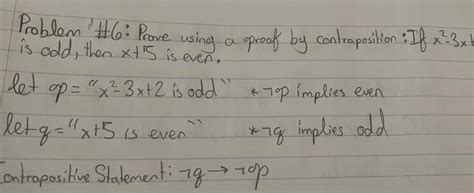 Problem #6: Prove using a proof by contraposition: If x²-3x+
is odd, then x+5 is even.
let p = "x²-3x+2 is odd" *¬p implies even
let q = "x+5 is even" *¬q implies odd
Contrapositive Statement: ¬q → ¬p